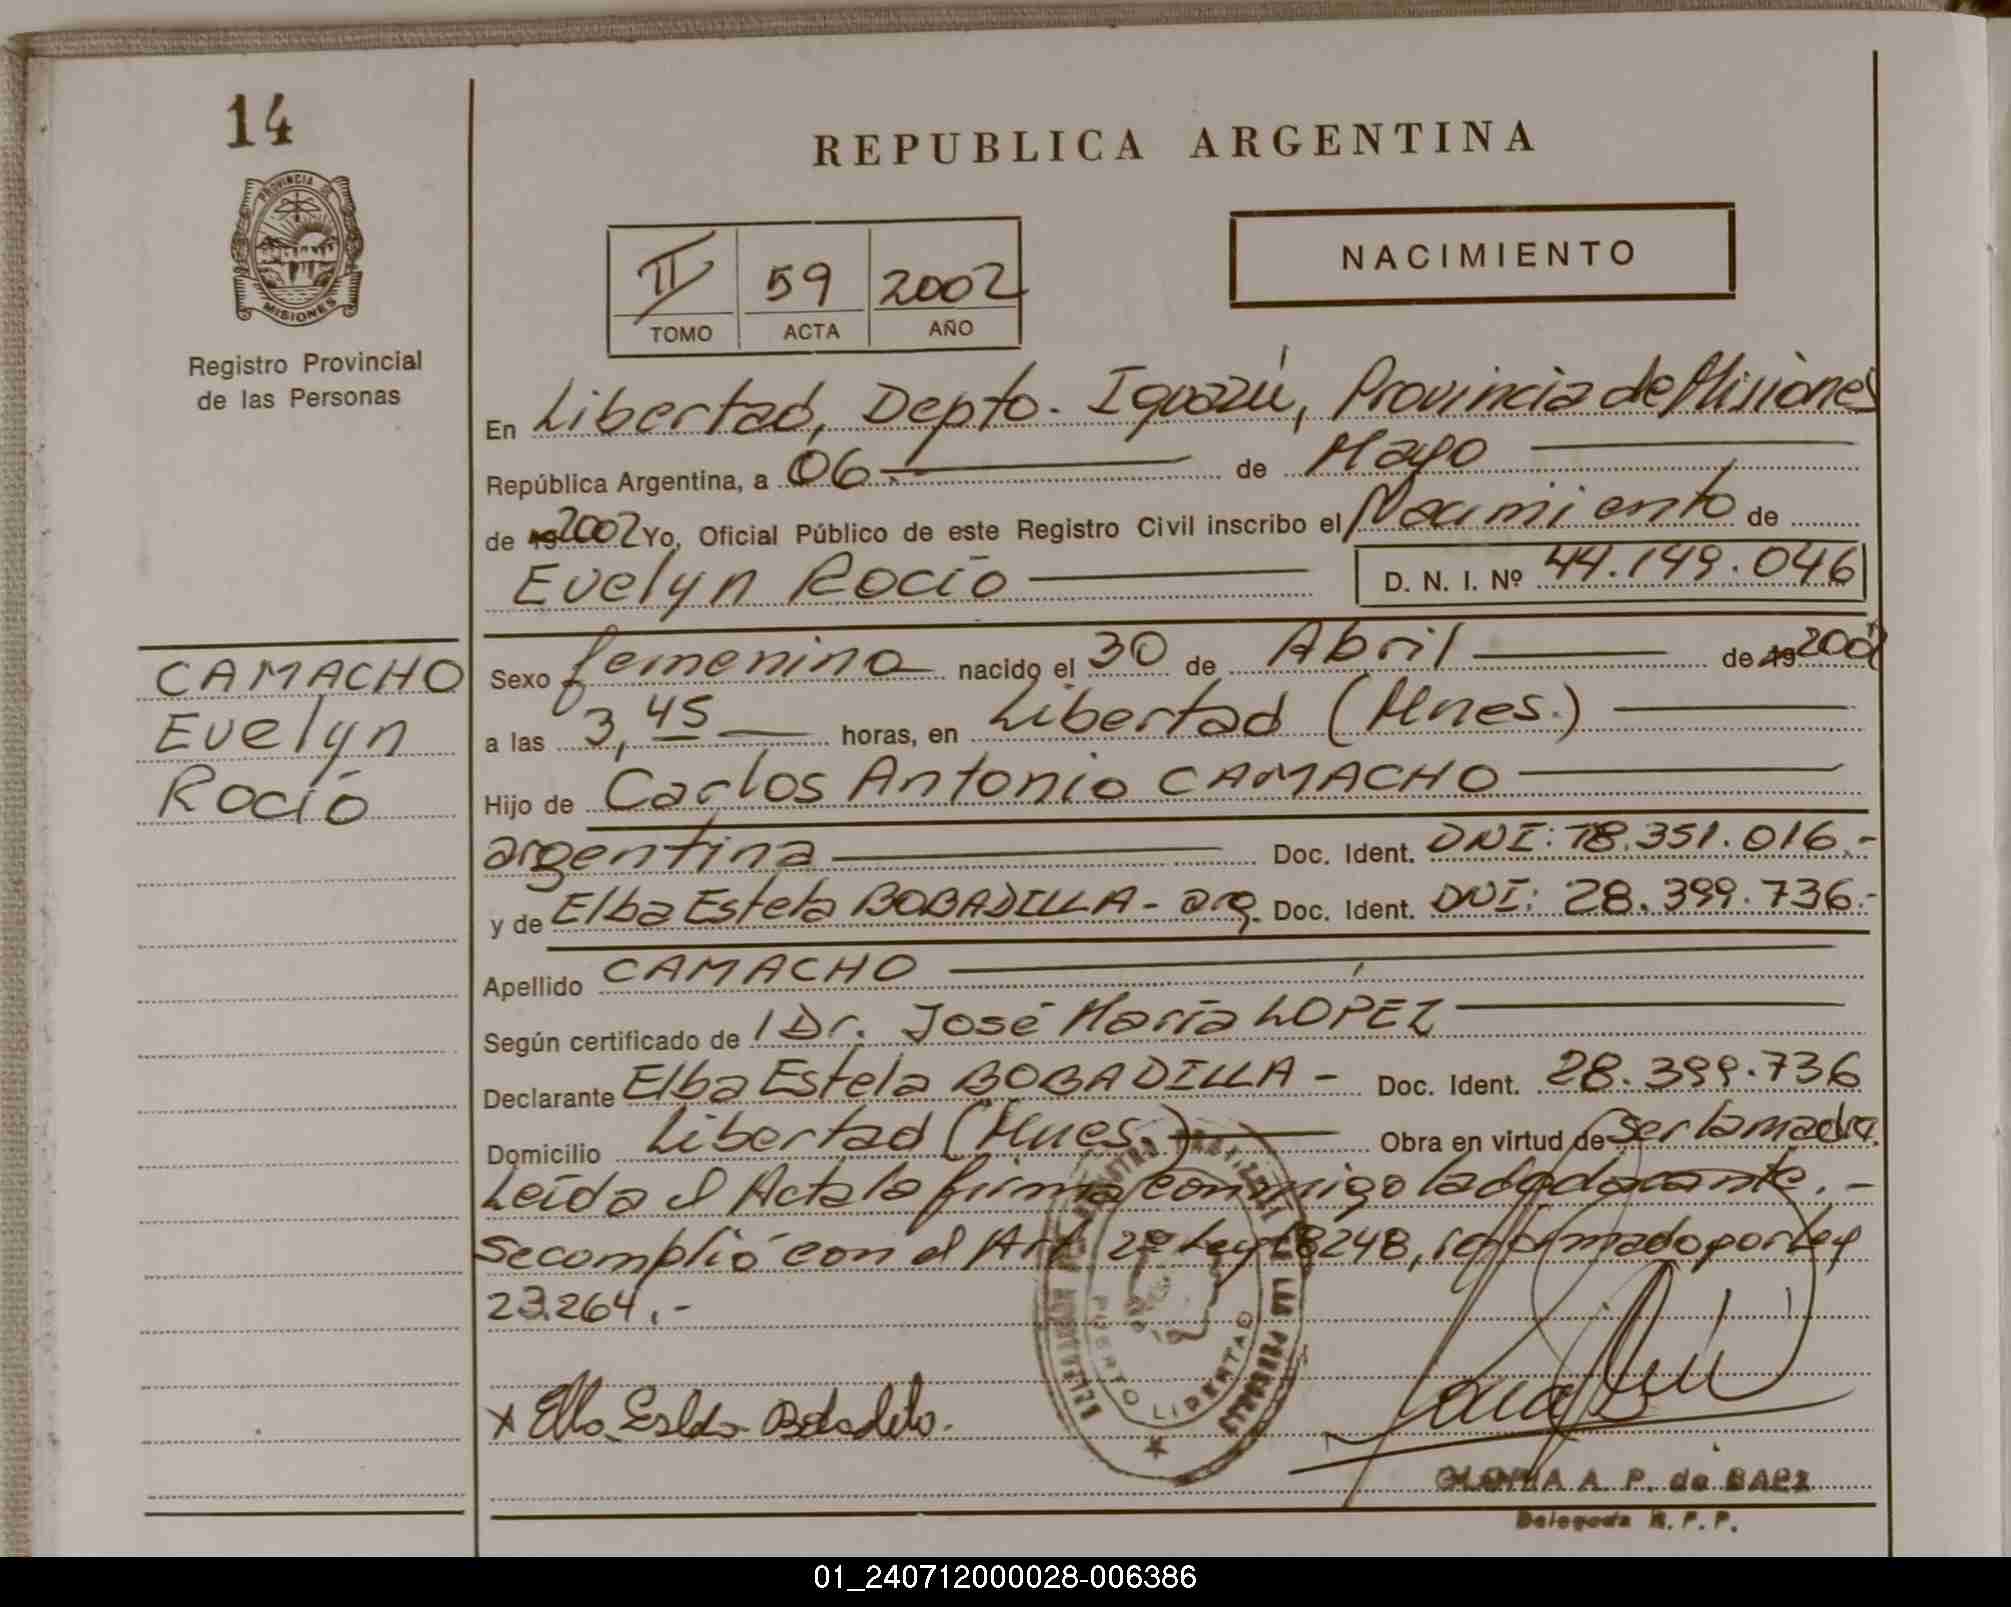 14
REPUBLICA ARGENTINA
PROVINCIA DE
MISIONES
Registro Provincial
de las Personas
II 59 2002
TOMO ACTA AÑO
NACIMIENTO
En Libertad, Depto. Iguazú, Provincia de Misiones
República Argentina, a 06 de Mayo
de 2002 Yo, Oficial Público de este Registro Civil inscribo el Nacimiento de
Evelyn Rocío D. N. I. Nº 44.149.046
CAMACHO
Evelyn
Rocío
Sexo femenino nacido el 30 de Abril de 19 2002
a las 3,45 horas, en Libertad (Mnes.)
Hijo de Carlos Antonio CAMACHO
argentina Doc. Ident. DNI: 18.351.016.-
y de Elba Estela BOBADILLA - arg. Doc. Ident. DNI: 28.399.736.-
Apellido CAMACHO
Según certificado de Dr. José María LOPEZ
Declarante Elba Estela BOBADILLA - Doc. Ident. 28.399.736
Domicilio Libertad (Mnes.) Obra en virtud de ser la madre.
Leída el Acta la firma conmigo la declarante. -
Se complió con el Art. 2º Ley 18248, reformado por Ley
23.264.-
PUERTO LIBERTAD
x Elba Estela Bobadilla.
GLORIA A. P. de BAEZ
Delegada R. P. P.
01_240712000028-006386